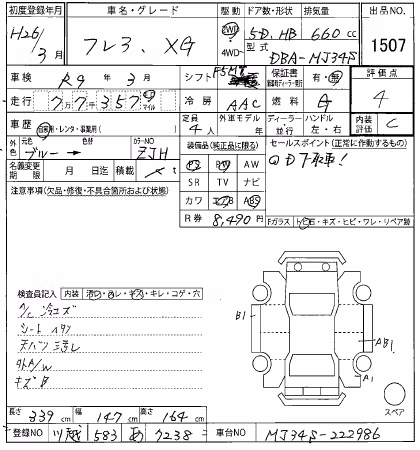 初度登録年月 車名・グレード 駆動 ドア数・形状 排気量 出品NO.
H26/3月 フレア・XG 2WD 4WD 5D.HB 660cc 1507
型式 DBA-MJ34S
車検 R9年3月 シフト F5MT 保証書 有・無 評価点
走行 77357 マイル 冷房 AAC 燃料 G 4
車歴 自家用・レンタ・事業用( ) 定員 4人 外車モデル年 ディーラー・並行 ハンドル 左・右 内装 C
外色 元色 ブルー→ 色替 カラーNO ZJH 装備品(純正品に限る) セールスポイント(正常に作動するもの)
名義変更期限 月 日迄 積載 t PS PW AW
注意事項(欠品・修復・不具合箇所および状態) SR TV ナビ
カワ エアB ABS
R券 8,490円 Fガラス トビ石・キズ・ヒビ・ワレ・リペア跡
検査員記入 内装 キズ・キレ・コゲ・穴
B1
AB1
A1
キズ
スペア
長さ 339cm 幅 147cm 高さ 164cm
登録NO 川越 583 あ 7238 車台NO MJ34S-222986